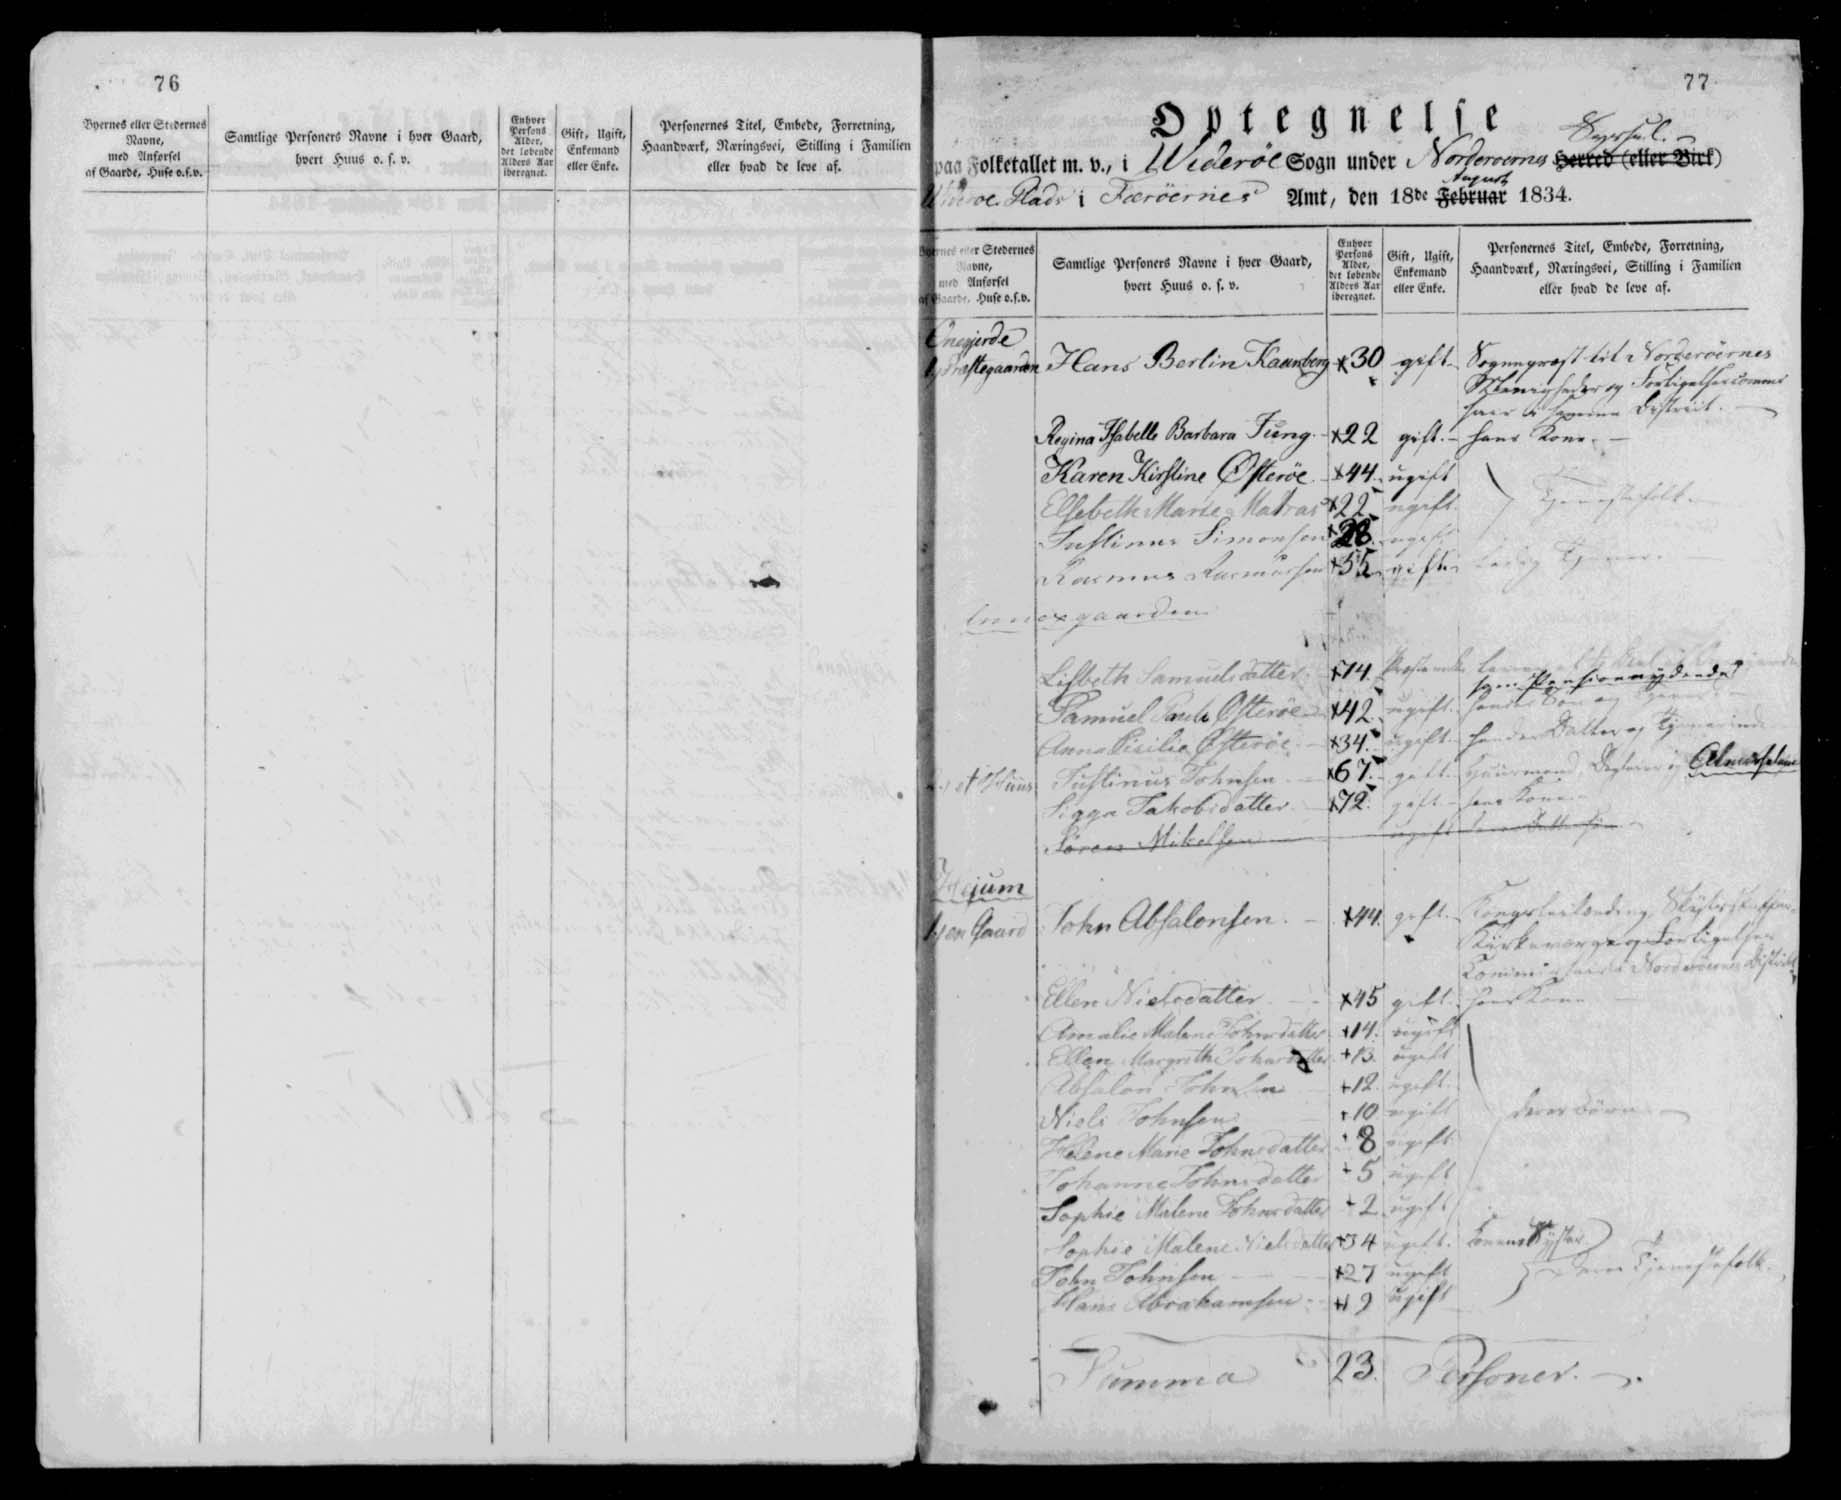 76
Byernes eller Stedernes
Navne,
med Anførsel
af Gaarde, Huse o.s.v.
Samtlige Personers Navne i hver Gaard,
hvert Huus o. s. v.
Enhver
Persons
Alder,
det løbende
Alders Aar
iberegnet.
Gift, Ugift,
Enkemand
eller Enke.
Personernes Titel, Embede, Forretning,
Haandværk, Næringsvei, Stilling i Familien
eller hvad de leve af.
77
Optegnelse
Syssel.
paa Folketallet m. v., i Widerøe Sogn under Norderøernes Herred (eller Birk)
August
Widerøe Plads i Færöernes Amt, den 18de Februar 1834.
Byernes eller Stedernes
Navne,
med Anførsel
af Gaarde, Huse o.s.v.
Samtlige Personers Navne i hver Gaard,
hvert Huus o. s. v.
Enhver
Persons
Alder,
det løbende
Alders Aar
iberegnet.
Gift, Ugift,
Enkemand
eller Enke.
Personernes Titel, Embede, Forretning,
Haandværk, Næringsvei, Stilling i Familien
eller hvad de leve af.
Onegjerde
Præstegaarden Hans Berlin 30 gift. Sognepræst til Norderöernes
Menigheder og Forligelsescommis
sair i samme District.
Regina Isabelle Barbara Jung. 22 gift. hans Kone.
Karen Kirstine Østerøe 44. ugift
Elsebeth Marie Matras 22 ugift. Tjenestefolk.
Justinus Simonsen 28. ugift
Rasmus Rasmussen 55 gift. Tjener.
Annexgaarden
Lisbeth Samuelsdatter. 74. Præsteenke
som Pensionnydende
Samuel Pauli Østerøe 42. ugift. hendes Søn og
Anna Sisilie Østerøe 34. ugift. hendes Datter og Tjenerinde
et Huus Justinus Johnsen 67. gift. Huusmand, Almisselem
Sigga Jakobsdatter 72. gift hans Kone.
Søren Mikelsen ugift
Hejum
1, en Gaard John Absalonsen. 44. gift. Kongsbonde og Skydsskaffer
Kirkeværge og Forligelses
Commissair i Norderöernes District
Ellen Nielsdatter. 45 gift. hans Kone
Amalie Malene Johnsdatter 14. ugift
Ellen Margrethe Johnsdatter 13. ugift
Absalon Johnsen 12. ugift.
Niels Johnsen 10 ugift deres Börn
Helene Marie Johnsdatter 8 ugift
Johanne Johnsdatter 5 ugift
Sophie Malene Johnsdatter 2 ugift
Sophie Malene Nielsdatter 34 ugift. Konens Syster
John Johnsen 27 ugift Tjenestefolk.
Hans Abrahamsen ugift
Summa 23. Personer.